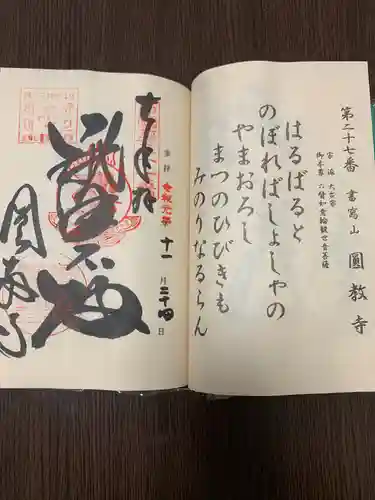 第二十七番 書寫山 圓教寺
宗派 天台宗
御本尊 六臂如意輪観世音菩薩
はるばると
のぼればしよしやの
やまおろし
まつのひびきも
みのりなるらん
奉拝 令和元年 十一月二十四日
圓教寺